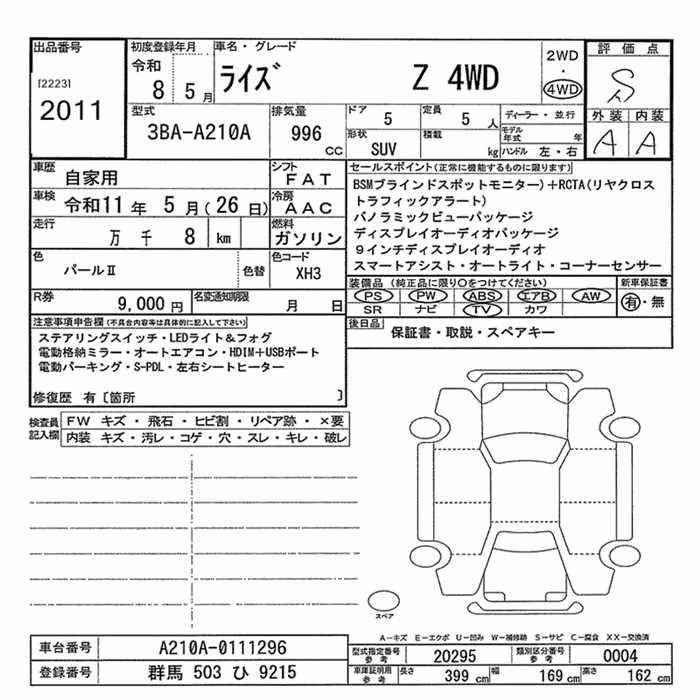 出品番号
[2223]
2011
初度登録年月
令和
8 5月
車名・グレード
ライズ Z 4WD
2WD
・
4WD
評価点
S
外装 内装
A A
型式
3BA-A210A
排気量
996 CC
ドア
5
定員
5 人
ディーラー・並行
形状
SUV
積載
kg
モデル年式 年
ハンドル 左・右
車歴
自家用
シフト
FAT
車検
令和11年 5月(26日)
冷房
AAC
走行
万 千 8 km
燃料
ガソリン
色
パールⅡ
色替
色コード
XH3
R券
9,000 円
名変通知期限
月 日
セールスポイント(正常に機能するものに限ります)
BSMブラインドスポットモニター)+RCTA(リヤクロス
トラフィックアラート)
パノラミックビューパッケージ
ディスプレイオーディオパッケージ
9インチディスプレイオーディオ
スマートアシスト・オートライト・コーナーセンサー
装備品(純正品に限り○をつけてください)
PS PW ABS エアB AW
SR ナビ TV カワ
新車保証書
有・無
後日品
保証書・取説・スペアキー
注意事項申告欄(不具合内容等は具体的に記入して下さい)
ステアリングスイッチ・LEDライト&フォグ
電動格納ミラー・オートエアコン・HDIM+USBポート
電動パーキング・S-PDL・左右シートヒーター
修復歴 有[箇所 ]
検査員
記入欄
FW キズ・飛石・ヒビ割・リペア跡・×要
内装 キズ・汚レ・コゲ・穴・スレ・キレ・破レ
スペア
A-キズ E-エクボ U-凹み W-補修跡 S-サビ C-腐食 XX-交換済
車台番号
A210A-0111296
登録番号
群馬 503 ひ 9215
型式指定番号
参考
20295
類別区分番号
参考
0004
車庫証明用
参考
長さ 399 cm 幅 169 cm 高さ 162 cm